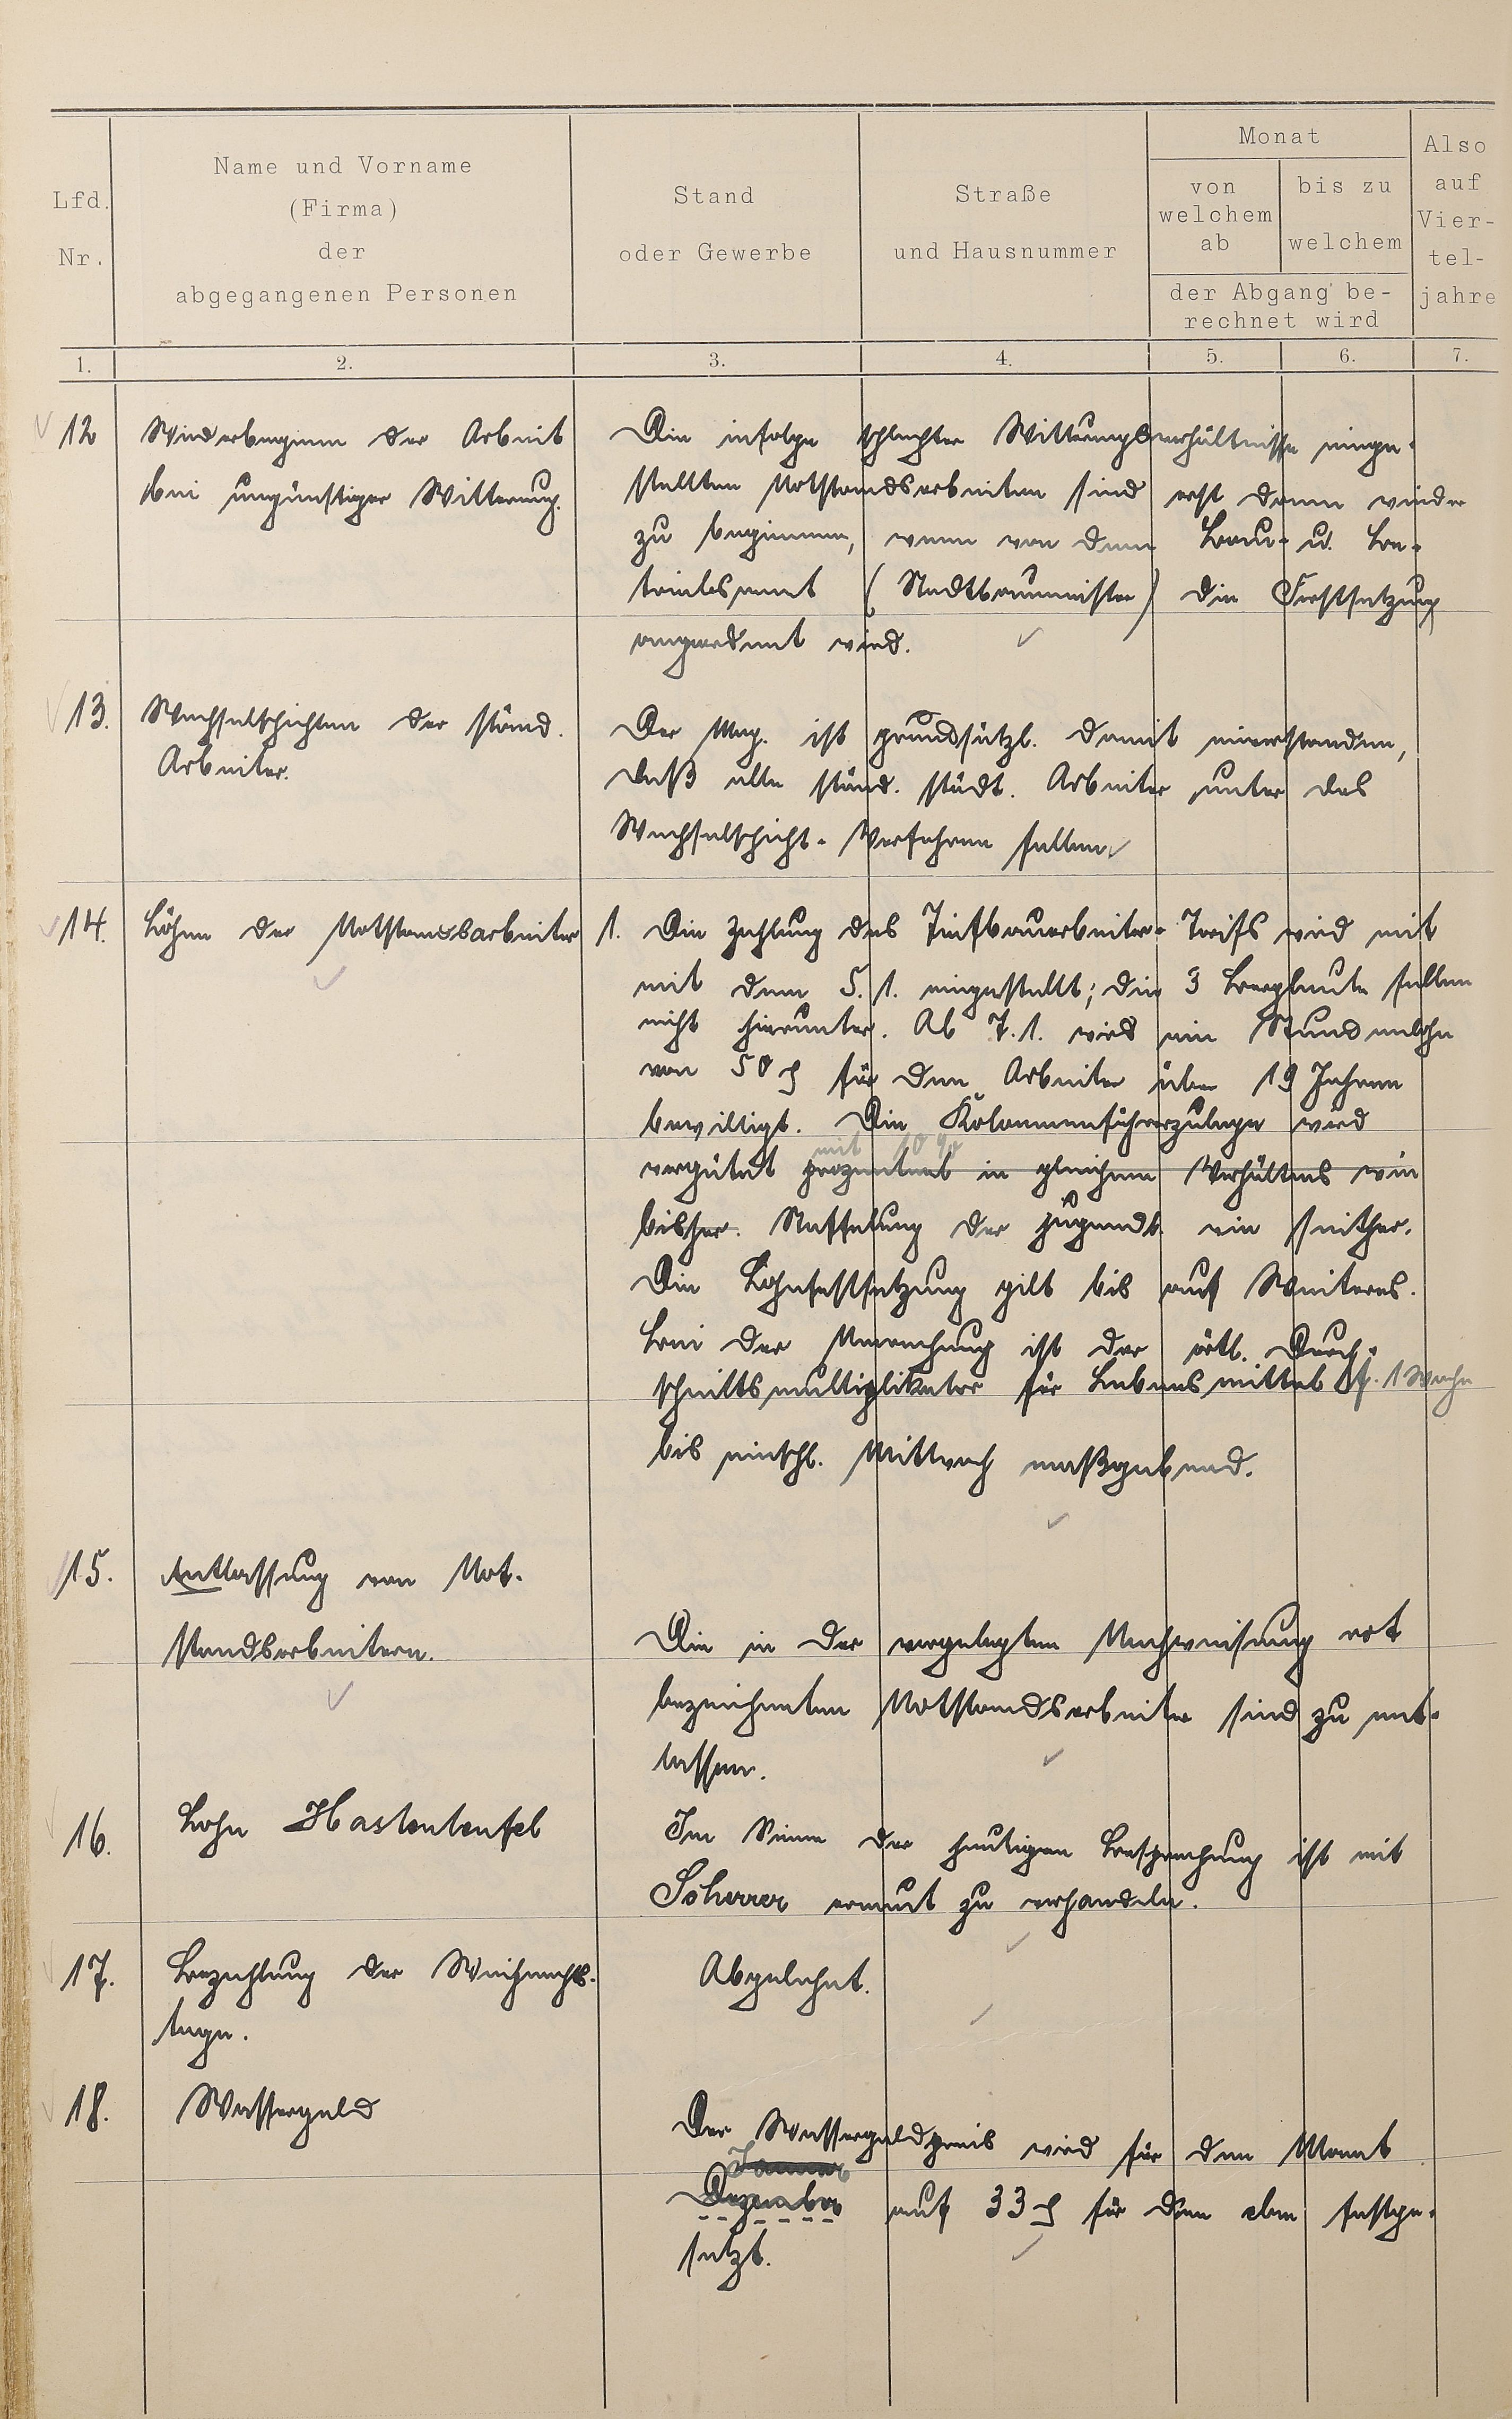 Lfd. Nr.
Name und Vorname
(Firma)
der
abgegangenen Personen
Stand
oder Gewerbe
Straße
und Hausnummer
Monat
von welchem ab
bis zu welchem
der Abgang be-
rechnet wird
Also auf Vier-tel-jahre
1. 2. 3. 4. 5. 6. 7.
12 Wiederbeginn der Arbeit
bei ungünstiger Witterung.
Die infolge schlechter Witterungsverhältnisse einge-
stellten Notstandsarbeiten sind erst dann wieder
zu beginnen, wenn von dem Bau- u. Be-
triebsamt (Stadtbaumeister) die Fortsetzung
angeordnet wird.
13. Wechselschichten der ständ.
Arbeiter.
Der Mag. ist grundsätzl. damit einverstanden,
daß alle ständ. städt. Arbeiter unter das
Wechselschicht-Verfahren fallen.
14. Löhne der Notstandsarbeiter
1. Die Zahlung des Tiefbauarbeiter-Tarifs wird mit
mit dem 5.1. eingestellt; die 3 Bergleute fallen
nicht hierunter. Ab 7.1. wird ein Stundenlohn
von 50 ₰ für den Arbeiter über 19 Jahren
bewilligt. Die Kolonnenführerzulage wird
mit 10 %
vergütet prozentual in gleichem Verhältnis wie
bisher. Staffelung der Jugendl. wie seither.
Die Lohnfestsetzung gilt bis auf Weiteres.
Bei der Errechnung ist der örtl. Durch-
schnittsmultiplikator für Lebensmittel f. 1 Woche
bis einschl. Mittwoch maßgebend.
15. Entlassung von Not-
standsarbeitern.
Die in der vorgelegten Nachweisung rot
bezeichneten Notstandsarbeiter sind zu ent-
lassen.
16. Lohn Hastenteufel
Im Sinne der heutigen Besprechung ist mit
Scherrer erneut zu verhandeln.
17. Bezahlung der Weihnachts-
tage.
Abgelehnt.
18. Wassergeld
Der Wassergeldpreis wird für den Monat
Januar
Dezember auf 33 ₰ für den cbm festge-
setzt.